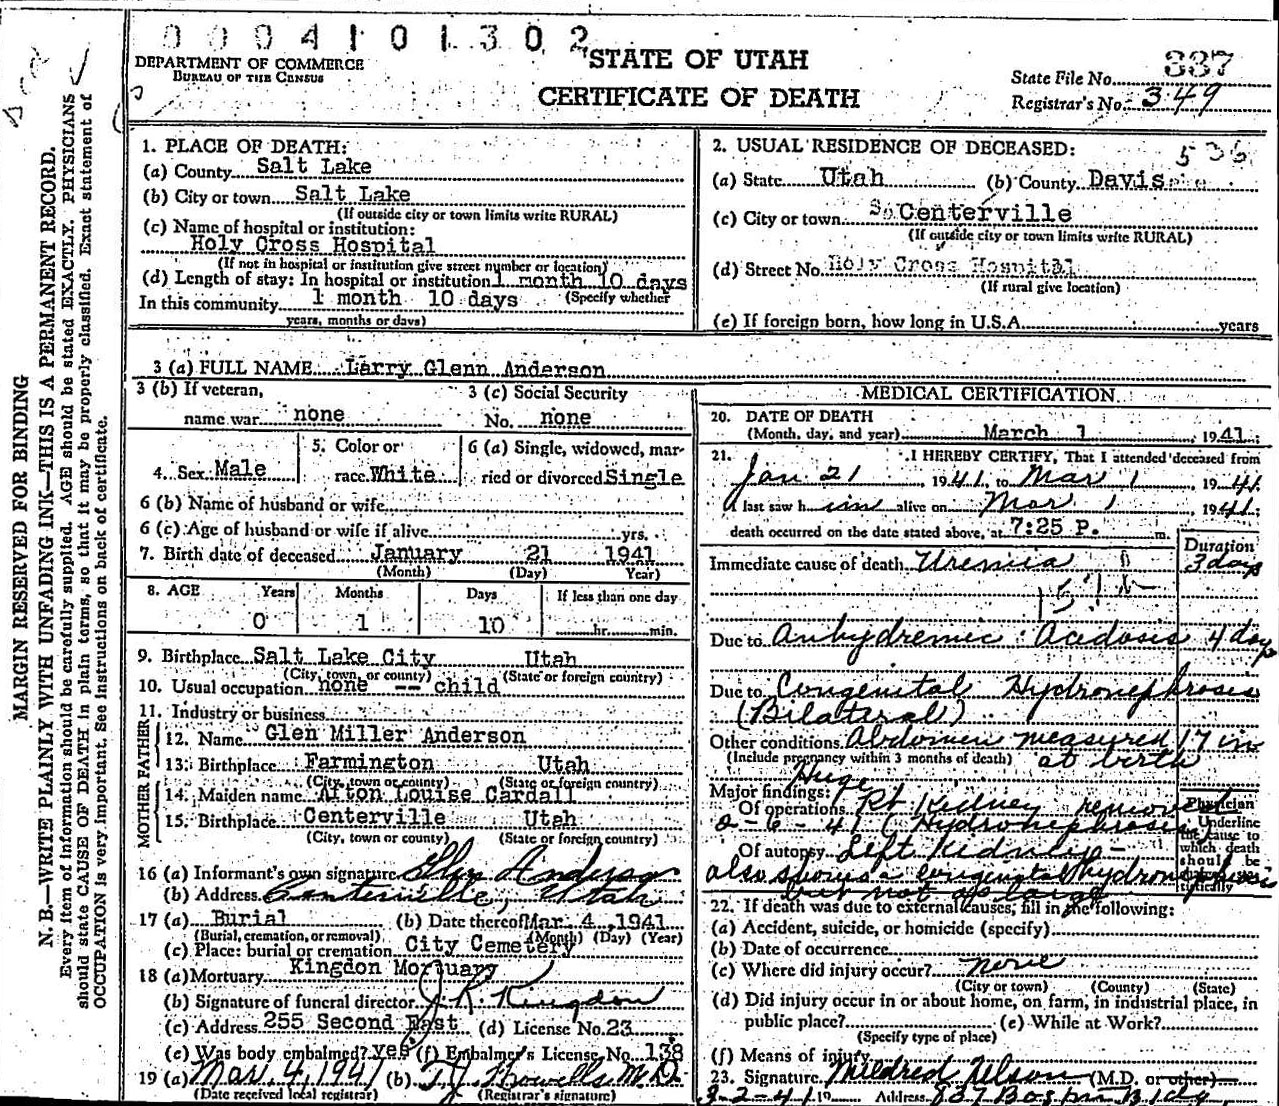 0004101302
DEPARTMENT OF COMMERCE
BUREAU OF THE CENSUS
STATE OF UTAH
CERTIFICATE OF DEATH
State File No. 337
Registrar's No. 349
MARGIN RESERVED FOR BINDING
N. B.—WRITE PLAINLY WITH UNFADING INK—THIS IS A PERMANENT RECORD.
Every item of information should be carefully supplied. AGE should be stated EXACTLY. PHYSICIANS
should state CAUSE OF DEATH in plain terms, so that it may be properly classified. Exact statement of
OCCUPATION is very important. See instructions on back of certificate.
1. PLACE OF DEATH:
(a) County Salt Lake
(b) City or town Salt Lake
(If outside city or town limits write RURAL)
(c) Name of hospital or institution:
Holy Cross Hospital
(If not in hospital or institution give street number or location)
(d) Length of stay: In hospital or institution 1 month 10 days
In this community 1 month 10 days (Specify whether
years, months or days)
2. USUAL RESIDENCE OF DECEASED:
(a) State Utah (b) County Davis
(c) City or town So Centerville
(If outside city or town limits write RURAL)
(d) Street No. Holy Cross Hospital
(If rural give location)
(e) If foreign born, how long in U.S.A. years
3 (a) FULL NAME Larry Glenn Anderson
3 (b) If veteran,
name war none
3 (c) Social Security
No. none
4. Sex Male
5. Color or
race White
6 (a) Single, widowed, mar-
ried or divorced Single
6 (b) Name of husband or wife
6 (c) Age of husband or wife if alive yrs.
7. Birth date of deceased January 21 1941
(Month) (Day) Year)
8. AGE Years Months Days If less than one day
0 1 10 hr. min.
9. Birthplace Salt Lake City Utah
(City, town, or county) (State or foreign country)
10. Usual occupation none -- child
11. Industry or business
FATHER
12. Name Glen Miller Anderson
13. Birthplace Farmington Utah
(City, town or county) (State or foreign country)
MOTHER
14. Maiden name Afton Louise Cardall
15. Birthplace Centerville Utah
(City, town or county) (State or foreign country)
16 (a) Informant's own signature Glen Anderson
(b) Address Centerville, Utah
17 (a) Burial (b) Date thereof Mar. 4, 1941
(Burial, cremation, or removal) (Month) (Day) (Year)
(c) Place: burial or cremation City Cemetery
18 (a) Mortuary Kingdon Mortuary
(b) Signature of funeral director J. R. Kingdon
(c) Address 255 Second East (d) License No. 23
(e) Was body embalmed? yes (f) Embalmer's License No. 138
19 (a) Mar. 4, 1941 (b) T. J. Howells M.D.
(Date received local registrar) (Registrar's signature)
MEDICAL CERTIFICATION
20. DATE OF DEATH
(Month, day, and year) March 1, 1941
21. I HEREBY CERTIFY, That I attended deceased from
Jan 21, 1941, to Mar 1, 1941
I last saw him alive on Mar 1, 1941;
death occurred on the date stated above, at 7:25 P. m.
Duration
Immediate cause of death Uremia 3 days
Due to Anhydremic Acidosis 4 days
Due to Congenital Hydronephrosis
(Bilateral)
Other conditions Abdomen measured 17 in
(Include pregnancy within 3 months of death) at birth
Major findings: Huge
Of operations Rt Kidney removed
2-6-41 (Hydronephrosis
Of autopsy Left Kidney -
also shows a congenital hydronephrosis
but not as large
Physician
Underline
the cause to
which death
should be
tistically
22. If death was due to external causes, fill in the following:
(a) Accident, suicide, or homicide (specify)
(b) Date of occurrence
(c) Where did injury occur? none
(City or town) (County) (State)
(d) Did injury occur in or about home, on farm, in industrial place, in
public place? (e) While at Work?
(Specify type of place)
(f) Means of injury
23. Signature Mildred Nelson (M.D. or other)
3-2-41 19 Address 837 Boston Bldg.